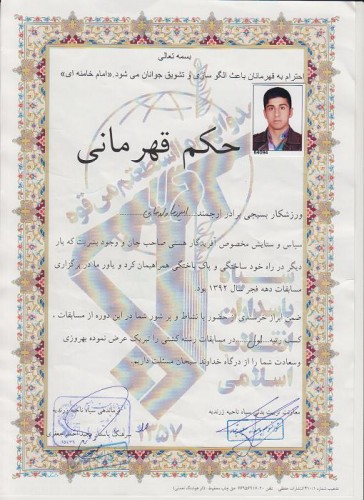 بسمه تعالی
احترام به قهرمانان باعث الگو سازی و تشویق جوانان می شود. «امام خامنه ای»
حکم قهرمانی
ورزشکار بسیجی برادر ارجمند
سپاس و ستایش مخصوص آفریدگار هستی صاحب جان و وجود بشریت که بار
دیگر در راه خود ساختگی و پاک باختگی همراهیمان کرد و یاور ما در برگزاری
مسابقات دهه فجر سال ۱۳۹۲ بود.
ضمن ابراز خرسندی از حضور با نشاط و پر شور شما در این دوره از مسابقات ،
کسب رتبه اول در مسابقات رشته کشتی را تبریک عرض نموده بهروزی
وسعادت شما را از درگاه خداوند سبحان مسئلت داریم.
معاونت تربیت بدنی سپاه ناحیه زرندیه
فرماندهی سپاه ناحیه زرندیه
پاسداران
انقلاب
اسلامی
۱۳۵۷